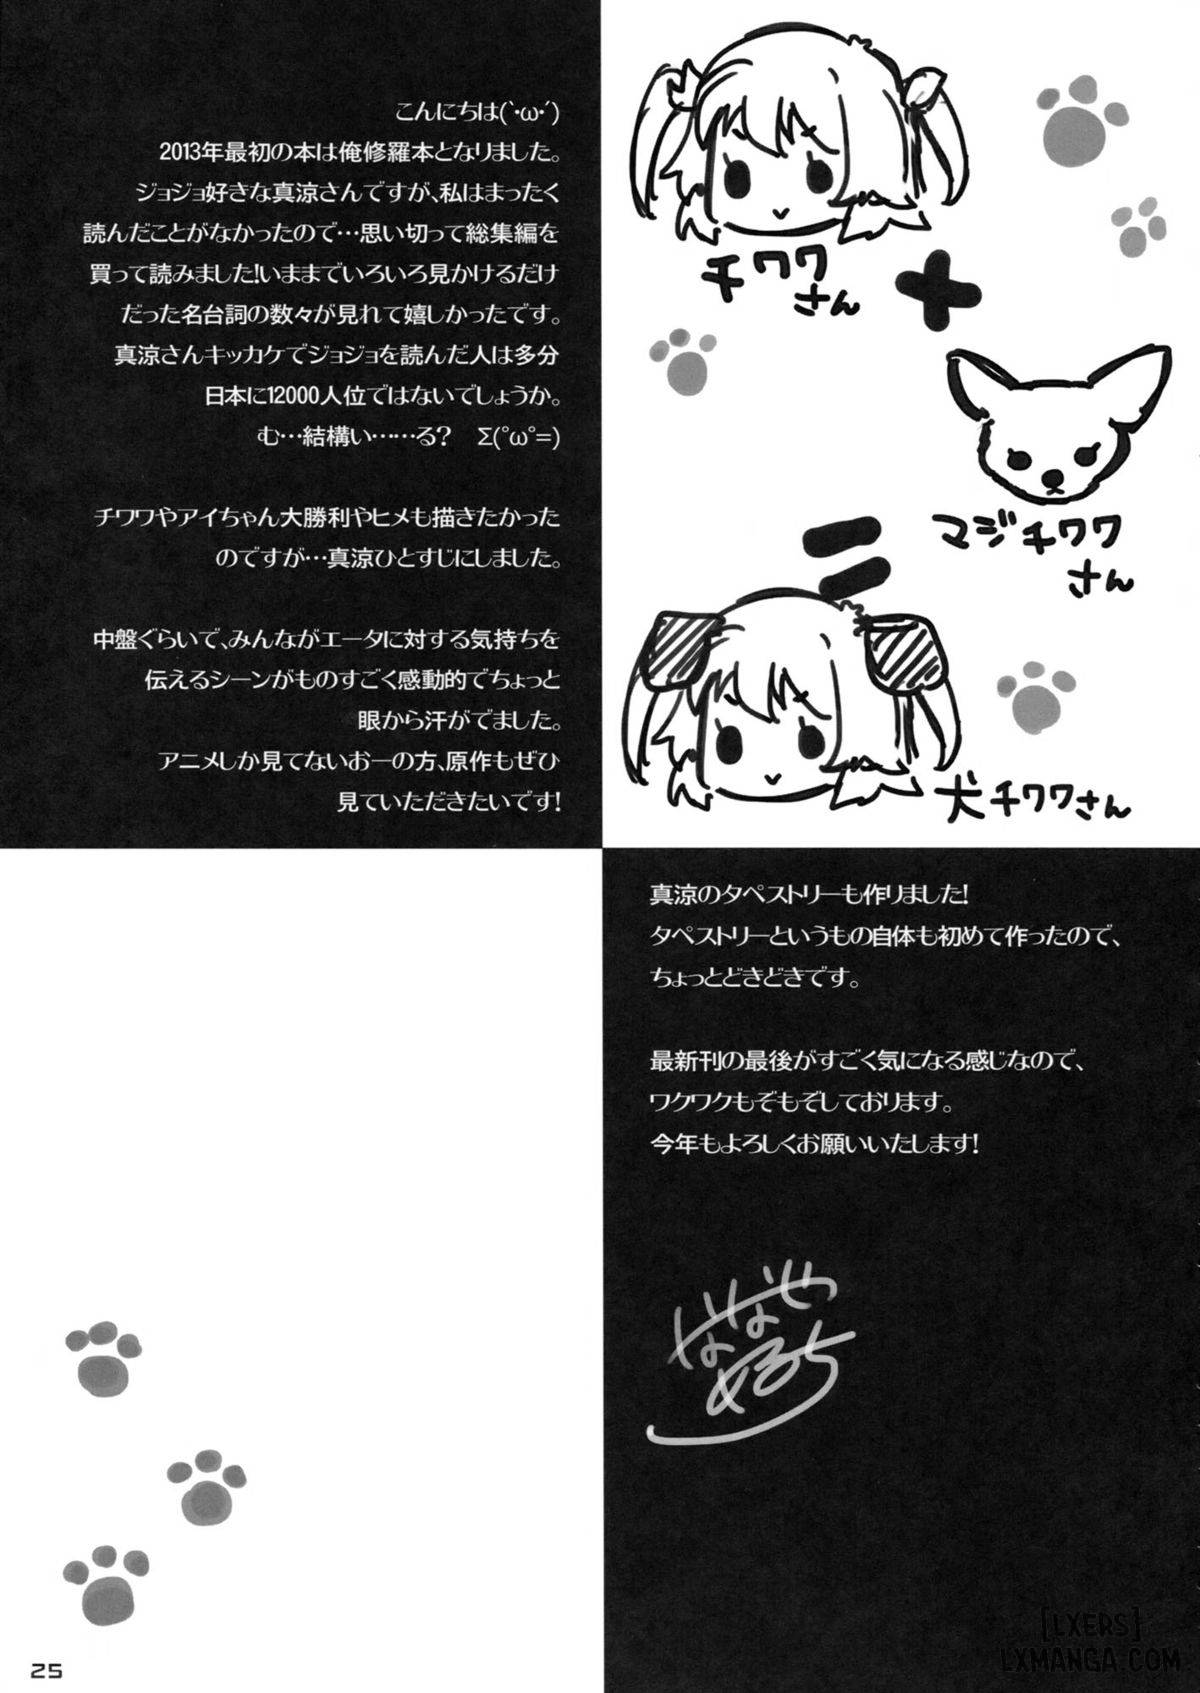 こんにちは(`･ω･´)
2013年最初の本は俺修羅本となりました。
ジョジョ好きな真涼さんですが、私はまったく
読んだことがなかったので…思い切って総集編を
買って読みました!いままでいろいろ見かけるだけ
だった名台詞の数々が見れて嬉しかったです。
真涼さんキッカケでジョジョを読んだ人は多分
日本に12000人位ではないでしょうか。
む…結構い……る?　Σ(ﾟωﾟ=)
チワワやアイちゃん大勝利やヒメも描きたかった
のですが…真涼ひとすじにしました。
中盤ぐらいで、みんながエータに対する気持ちを
伝えるシーンがものすごく感動的でちょっと
眼から汗がでました。
アニメしか見てないおーの方、原作もぜひ
見ていただきたいです!
チワワ
さん
+
マジチワワ
さん
=
犬チワワさん
真涼のタペストリーも作りました!
タペストリーというもの自体も初めて作ったので、
ちょっとどきどきです。
最新刊の最後がすごく気になる感じなので、
ワクワクもぞもぞしております。
今年もよろしくお願いいたします!
ななせ
めるち
25
[LXERS]
LXMANGA.COM